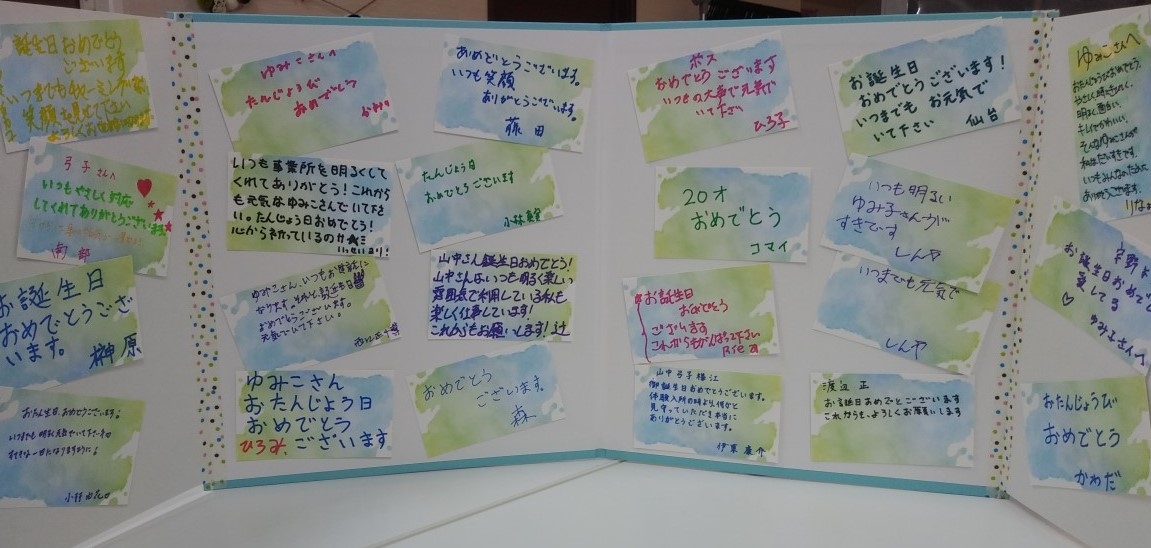 誕生日おめでとう
ございます
いつまでもチャーミングな
笑顔を見せて下さい
弓子さんへ
いつもやさしく対応
してくれてありがとうございます
お誕生日
おめでとうござ
います。 榊原
お誕生日、おめでとうございます。
いつまでも明るく元気でいて下さいネ
ゆみこさんへ
たんじょうび
おめでとう
おめでとうございます。
いつも笑顔
ありがとうございます。
藤田
いつも事業所を明るくして
くれてありがとう!これから
も元気なゆみこさんでいて下さ
い。たんじょう日おめでとう!
心から祝っているのだ
たんじょう日
おめでとうございます
小林
ゆみこさん、いつもお世話に
なります。
おめでとうございます。
元気でいて下さい。
山中さん誕生日おめでとう!
山中さんはいつも明るく楽しい
雰囲気で利用している私も
楽しく仕事しています!
これからもお願いします!辻
ゆみこさん
おたんじょう日
おめでとう
ひろみ. ございます
おめでとう
ございます
森
ボス
おめでとうございます
いつもの大声で元気で
いて下さい
ひろ子
お誕生日
おめでとうございます!
いつまでも お元気で
いて下さい 仙台
20才
おめでとう
コマイ
いつも明るい
ゆみ子さんが
すきです
しんや
お誕生日
おめでとう
ございます
これからもがんばって下さい
いつまでも元気で
しんや
山中弓子様江
御誕生日おめでとうございます。
体験入所の時より、何かと
見守っていただき本当に
ありがとうございます。
伊東
渡辺 正
お誕生日おめでとうございます
これからも、ようしくお願いします
ゆみこさんへ
おたんじょうびおめでとう
やさしく
明るく、面白い、
キレイでかわいい、
そんなゆみこさんが
私はだいすきです。
いつもみんなのために
ありがとうございます。
お誕生日おめでとう
愛してる
♡ ゆみ子さんへ
おたんじょうび
おめでとう
かわだ